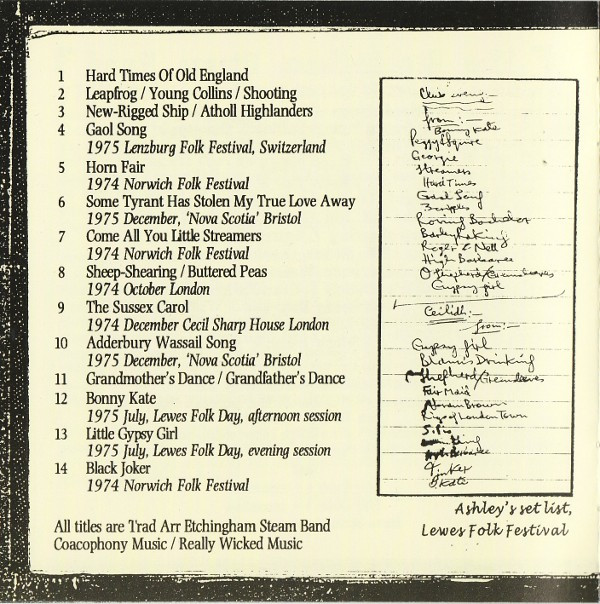 1 Hard Times Of Old England
2 Leapfrog / Young Collins / Shooting
3 New-Rigged Ship / Atholl Highlanders
4 Gaol Song
1975 Lenzburg Folk Festival, Switzerland
5 Horn Fair
1974 Norwich Folk Festival
6 Some Tyrant Has Stolen My True Love Away
1975 December, 'Nova Scotia' Bristol
7 Come All You Little Streamers
1974 Norwich Folk Festival
8 Sheep-Shearing / Buttered Peas
1974 October London
9 The Sussex Carol
1974 December Cecil Sharp House London
10 Adderbury Wassail Song
1975 December, 'Nova Scotia' Bristol
11 Grandmother's Dance / Grandfather's Dance
12 Bonny Kate
1975 July, Lewes Folk Day, afternoon session
13 Little Gypsy Girl
1975 July, Lewes Folk Day, evening session
14 Black Joker
1974 Norwich Folk Festival
All titles are Trad Arr Etchingham Steam Band
Coacophony Music / Really Wicked Music
Club
from:-
Bonny Kate
Georgie
Streamers
Hard Times
Gaol Song
Roving
Barley Raking
Roger & Nell
High Barbaree
O Shepherd/Greensleeves
Gypsy girl
Ceilidh:-
from:-
Gypsy girl
Drinking
Shepherd/Greensleeves
Fair Maid
Brown
of London Town
Tinker
B. Kate
Ashley's set list,
Lewes Folk Festival